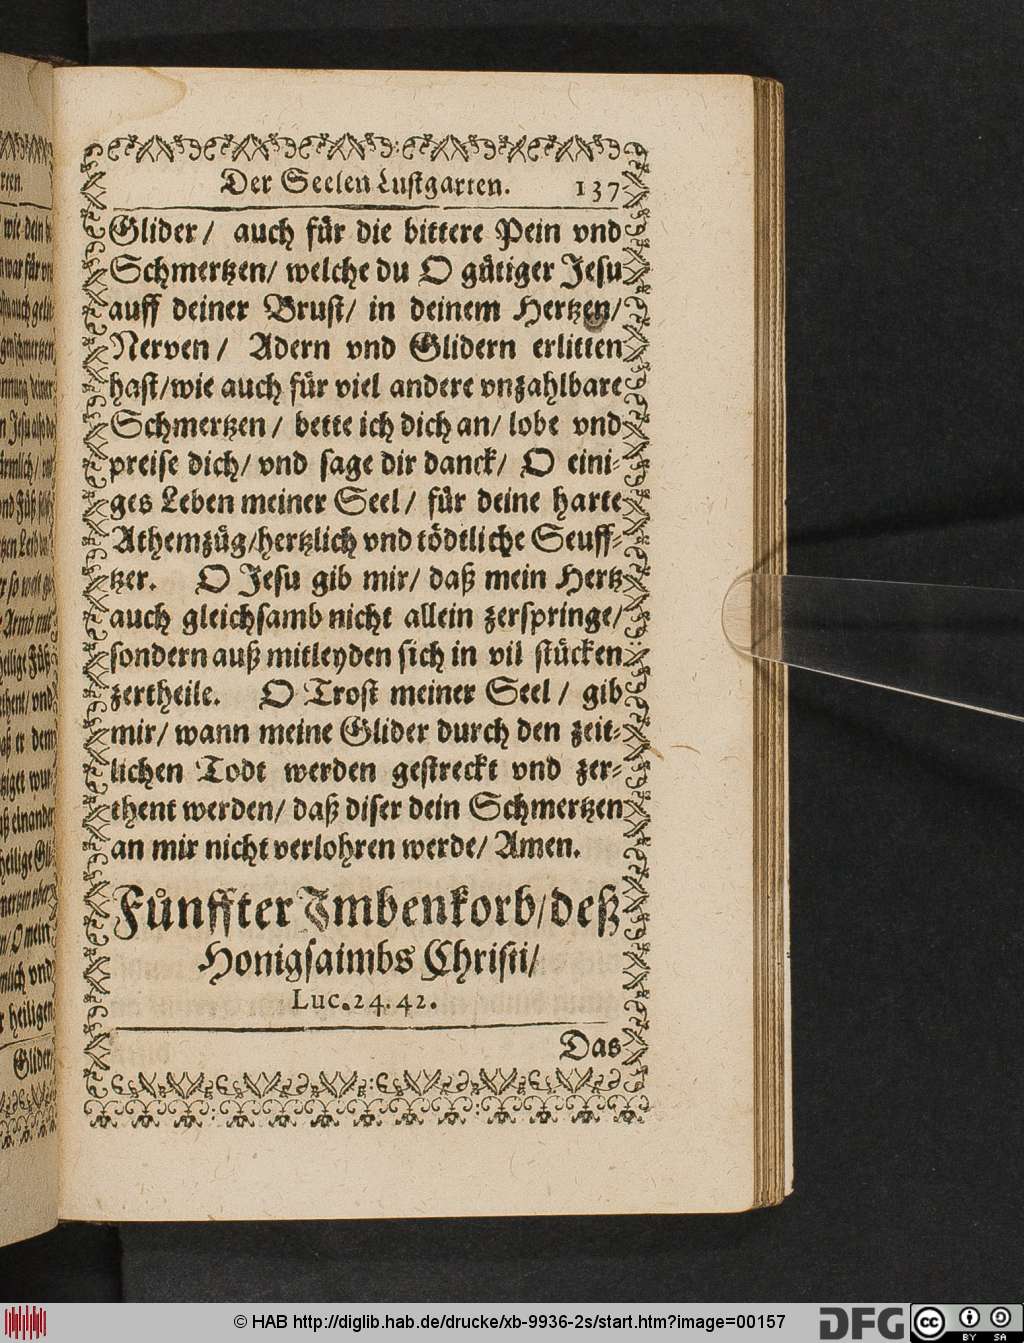 Der Seelen Lustgarten. 137
Glider / auch für die bittere Pein vnd
Schmertzen / welche du O gütiger Jesu
auff deiner Brust / in deinem Hertzen /
Nerven / Adern vnd Glidern erlitten
hast / wie auch für viel andere vnzahlbare
Schmertzen / bette ich dich an / lobe vnd
preise dich / vnd sage dir danck / O eini-
ges Leben meiner Seel / für deine harte
Athemzüg / hertzlich vnd tödtliche Seuff-
tzer. O Jesu gib mir / daß mein Hertz
auch gleichsamb nicht allein zerspringe /
sondern auß mitleyden sich in vil stücken
zertheile. O Trost meiner Seel / gib
mir / wann meine Glider durch den zeit-
lichen Todt werden gestreckt vnd zer-
thent werden / daß diser dein Schmertzen
an mir nicht verlohren werde / Amen.
Fünffter Imbenkorb / deß
Honigsaimbs Christi /
Luc. 24. 42.
Das
Glider
© HAB http://diglib.hab.de/drucke/xb-9936-2s/start.htm?image=00157
DFG
cc BY SA